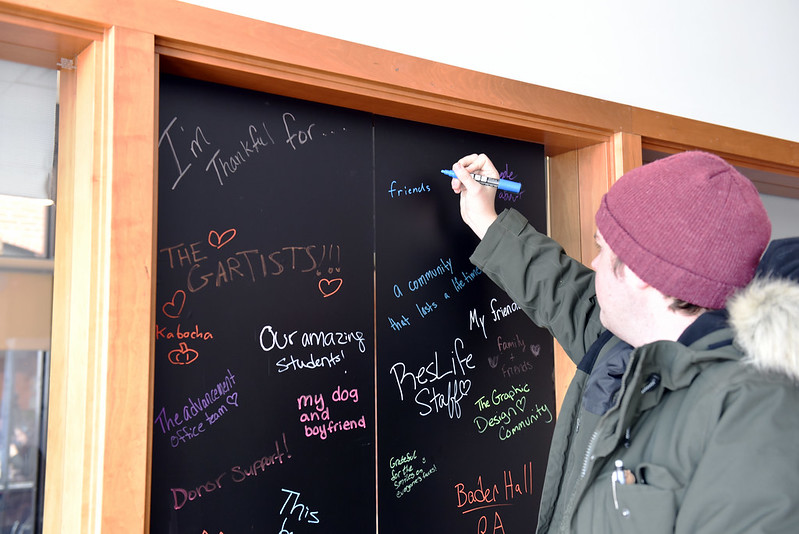 I'm
Thankful for...
THE
GARTISTS!!!
Kabocha
Our amazing
students!
The advancement
office team
my dog
and
boyfriend
Donor Support!
This
friends
a community
that lasts a lifetime
My friends
family +
friends
ResLife
Staff
The Graphic
Design
Community
Grateful
for the
smiles on
everyones faces!
Bader Hall
RA